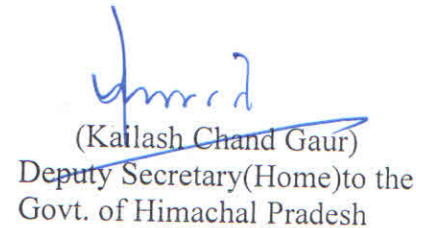 (Kailash Chand Gaur)
Deputy Secretary(Home)to the
Govt. of Himachal Pradesh